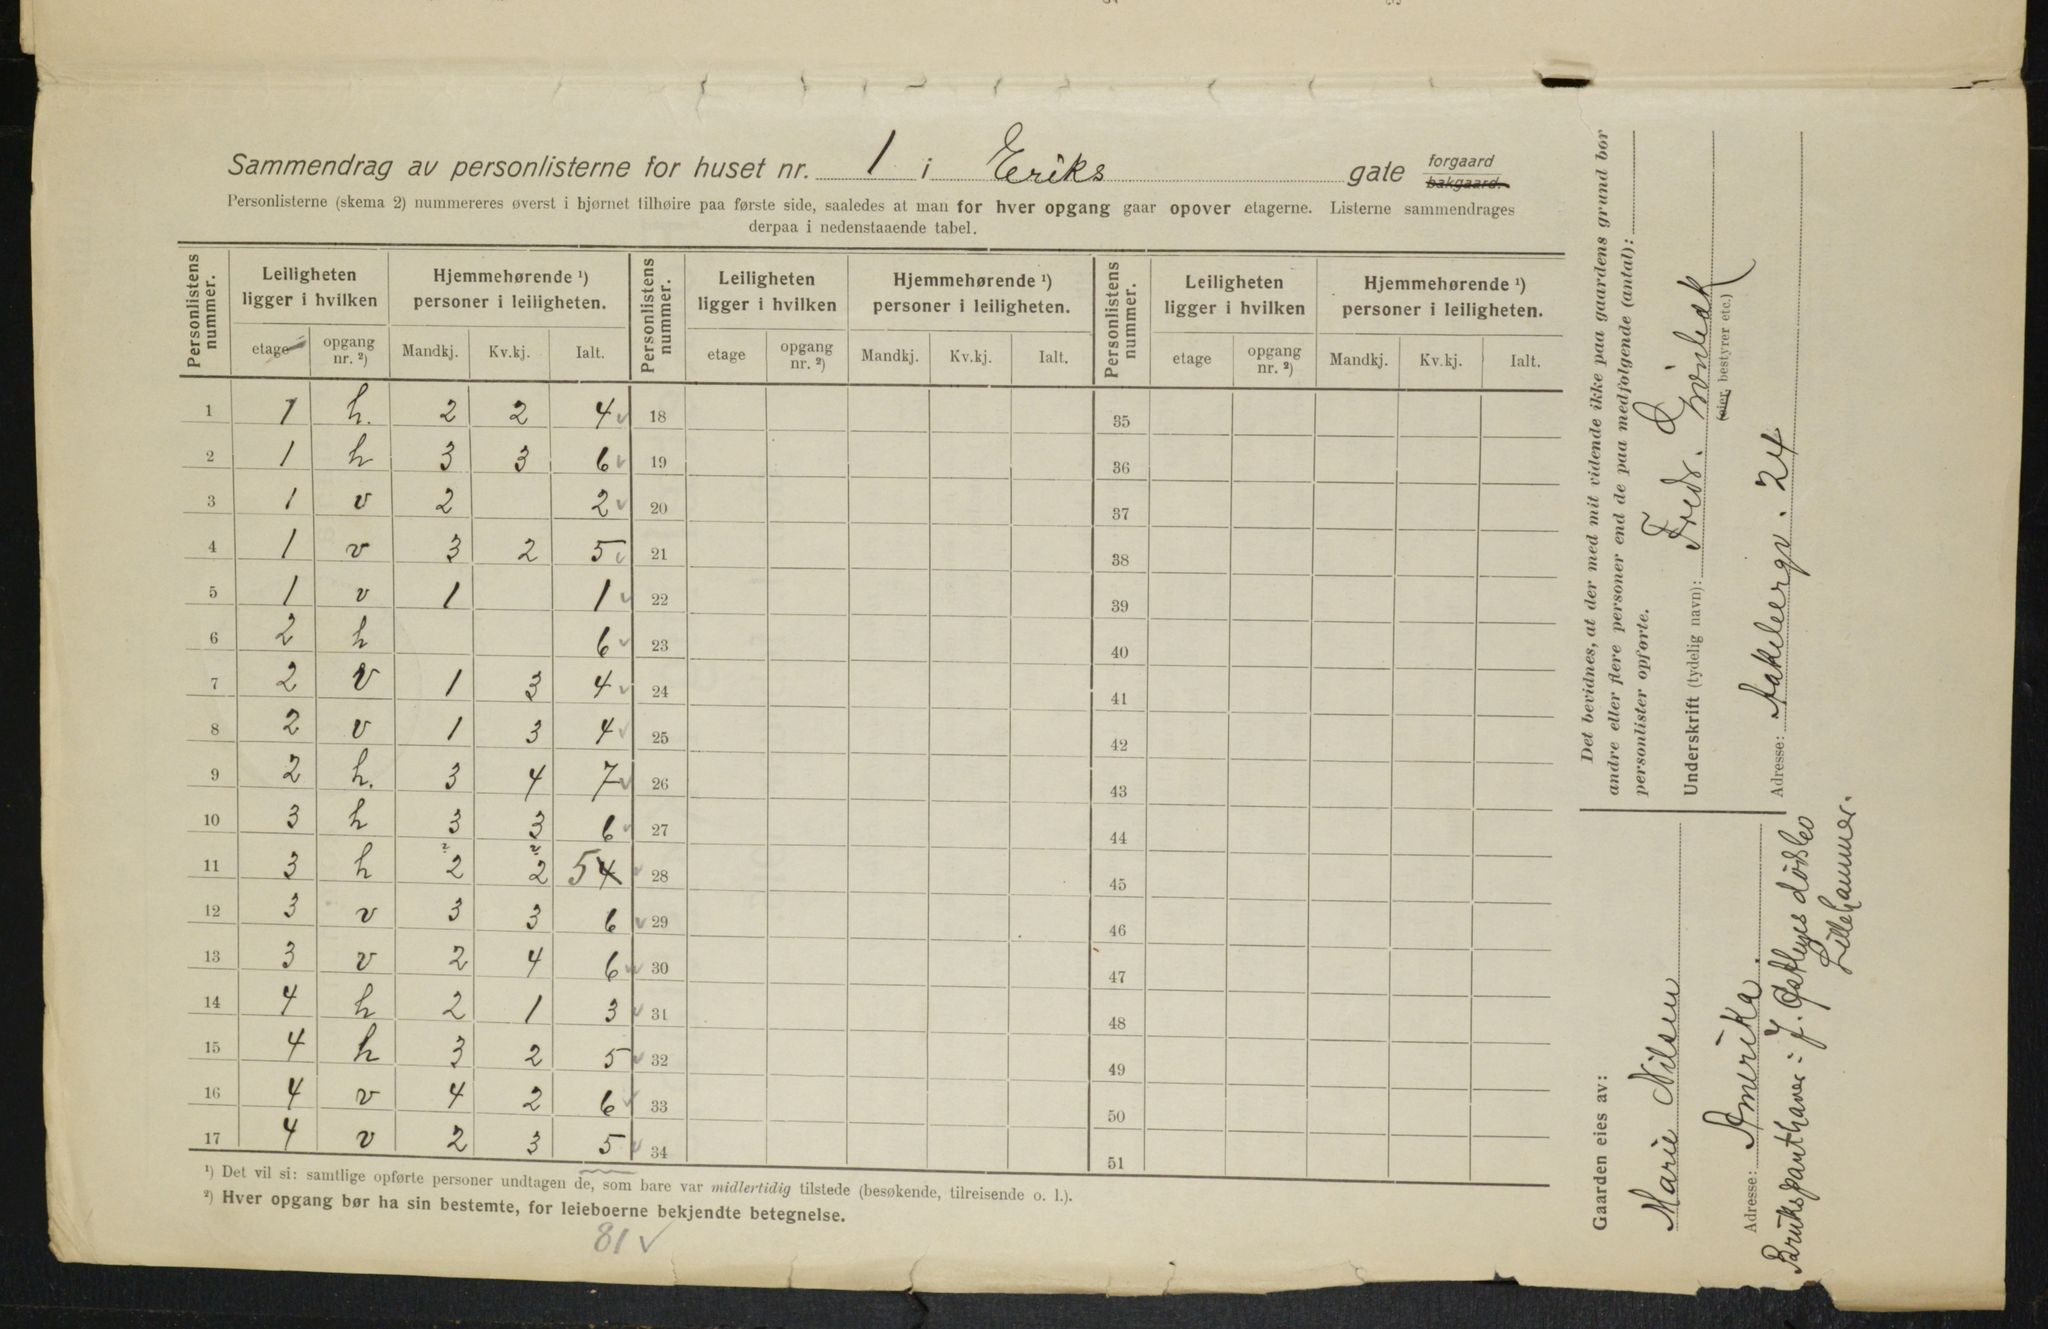 Sammendrag av personlisterne for huset nr. 1 i Eriks gate forgaard bakgaard.
Personlisterne (skema 2) nummereres øverst i hjørnet tilhøire paa første side, saaledes at man for hver opgang gaar opover etagerne. Listerne sammendrages
derpaa i nedenstaaende tabel.
Personlistens nummer. Leiligheten ligger i hvilken Hjemmehørende ¹) personer i leiligheten. Personlistens nummer. Leiligheten ligger i hvilken Hjemmehørende ¹) personer i leiligheten. Personlistens nummer. Leiligheten ligger i hvilken Hjemmehørende ¹) personer i leiligheten.
etage opgang nr. ²) Mandkj. Kv.kj. Ialt. etage opgang nr. ²) Mandkj. Kv.kj. Ialt. etage opgang nr. ²) Mandkj. Kv.kj. Ialt.
1 1 h. 2 2 4 18 35
2 1 h 3 3 6 19 36
3 1 v 2 2 20 37
4 1 v 3 2 5 21 38
5 1 v 1 1 22 39
6 2 h 6 23 40
7 2 v 1 3 4 24 41
8 2 v 1 3 4 25 42
9 2 h. 3 4 7 26 43
10 3 h 3 3 6 27 44
11 3 h 2 2 5 4 28 45
12 3 v 3 3 6 29 46
13 3 v 2 4 6 30 47
14 4 h 2 1 3 31 48
15 4 h 3 2 5 32 49
16 4 v 4 2 6 33 50
17 4 v 2 3 5 34 51
¹) Det vil si: samtlige opførte personer undtagen de, som bare var midlertidig tilstede (besøkende, tilreisende o. l.).
²) Hver opgang bør ha sin bestemte, for leieboerne bekjendte betegnelse.
81 ✓
Det bevidnes, at der med mit vidende ikke paa gaardens grund bor
andre eller flere personer end de paa medfølgende (antal):
personlister opførte.
Underskrift (tydelig navn): Fredr.
(eier, bestyrer etc.)
Adresse: Aakebergv. 24
Gaarden eies av:
Marie Nilsen
Adresse: Amerika.
Brukspanthaver: J. dødsbo
Lillehammer.